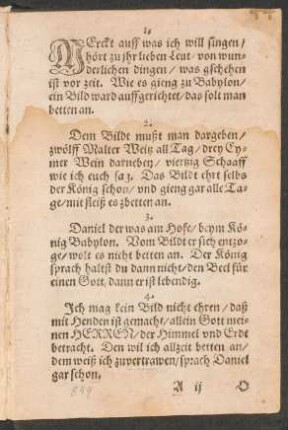 1.
MErckt auff was ich will singen/
hört zu jhr lieben Leut/ von wun-
derlichen dingen/ was gschehen
ist vor zeit. Wie es gieng zu Babylon/
ein Bild ward auffgerichtet/ das solt man
betten an.
2.
Dem Bildt mußt man dargeben/
zwölff Malter Weitz all Tag/ drey Ey-
mer Wein darneben/ viertzig Schaaff
wie ich euch sag. Das Bildt ehrt selbs
der König schon/ vnd gieng gar alle Ta-
ge/ mit fleiß es zbetten an.
3.
Daniel der was am Hofe/ beym Kö-
nig Babylon. Vom Bildt er sich entzo-
ge/ wolt es nicht betten an. Der König
sprach haltst du dann nicht/ den Beel für
einen Gott/ dann er ist lebendig.
4.
Ich mag kein Bild nicht ehren/ daß
mit Henden ist gemacht/ allein Gott mei-
nen HERREN/ der Himmel vnd Erdt
betracht. Den wil ich allzeit betten an/
dem weiß ich zuvertrawen/ sprach Daniel
gar schon.
A ij O